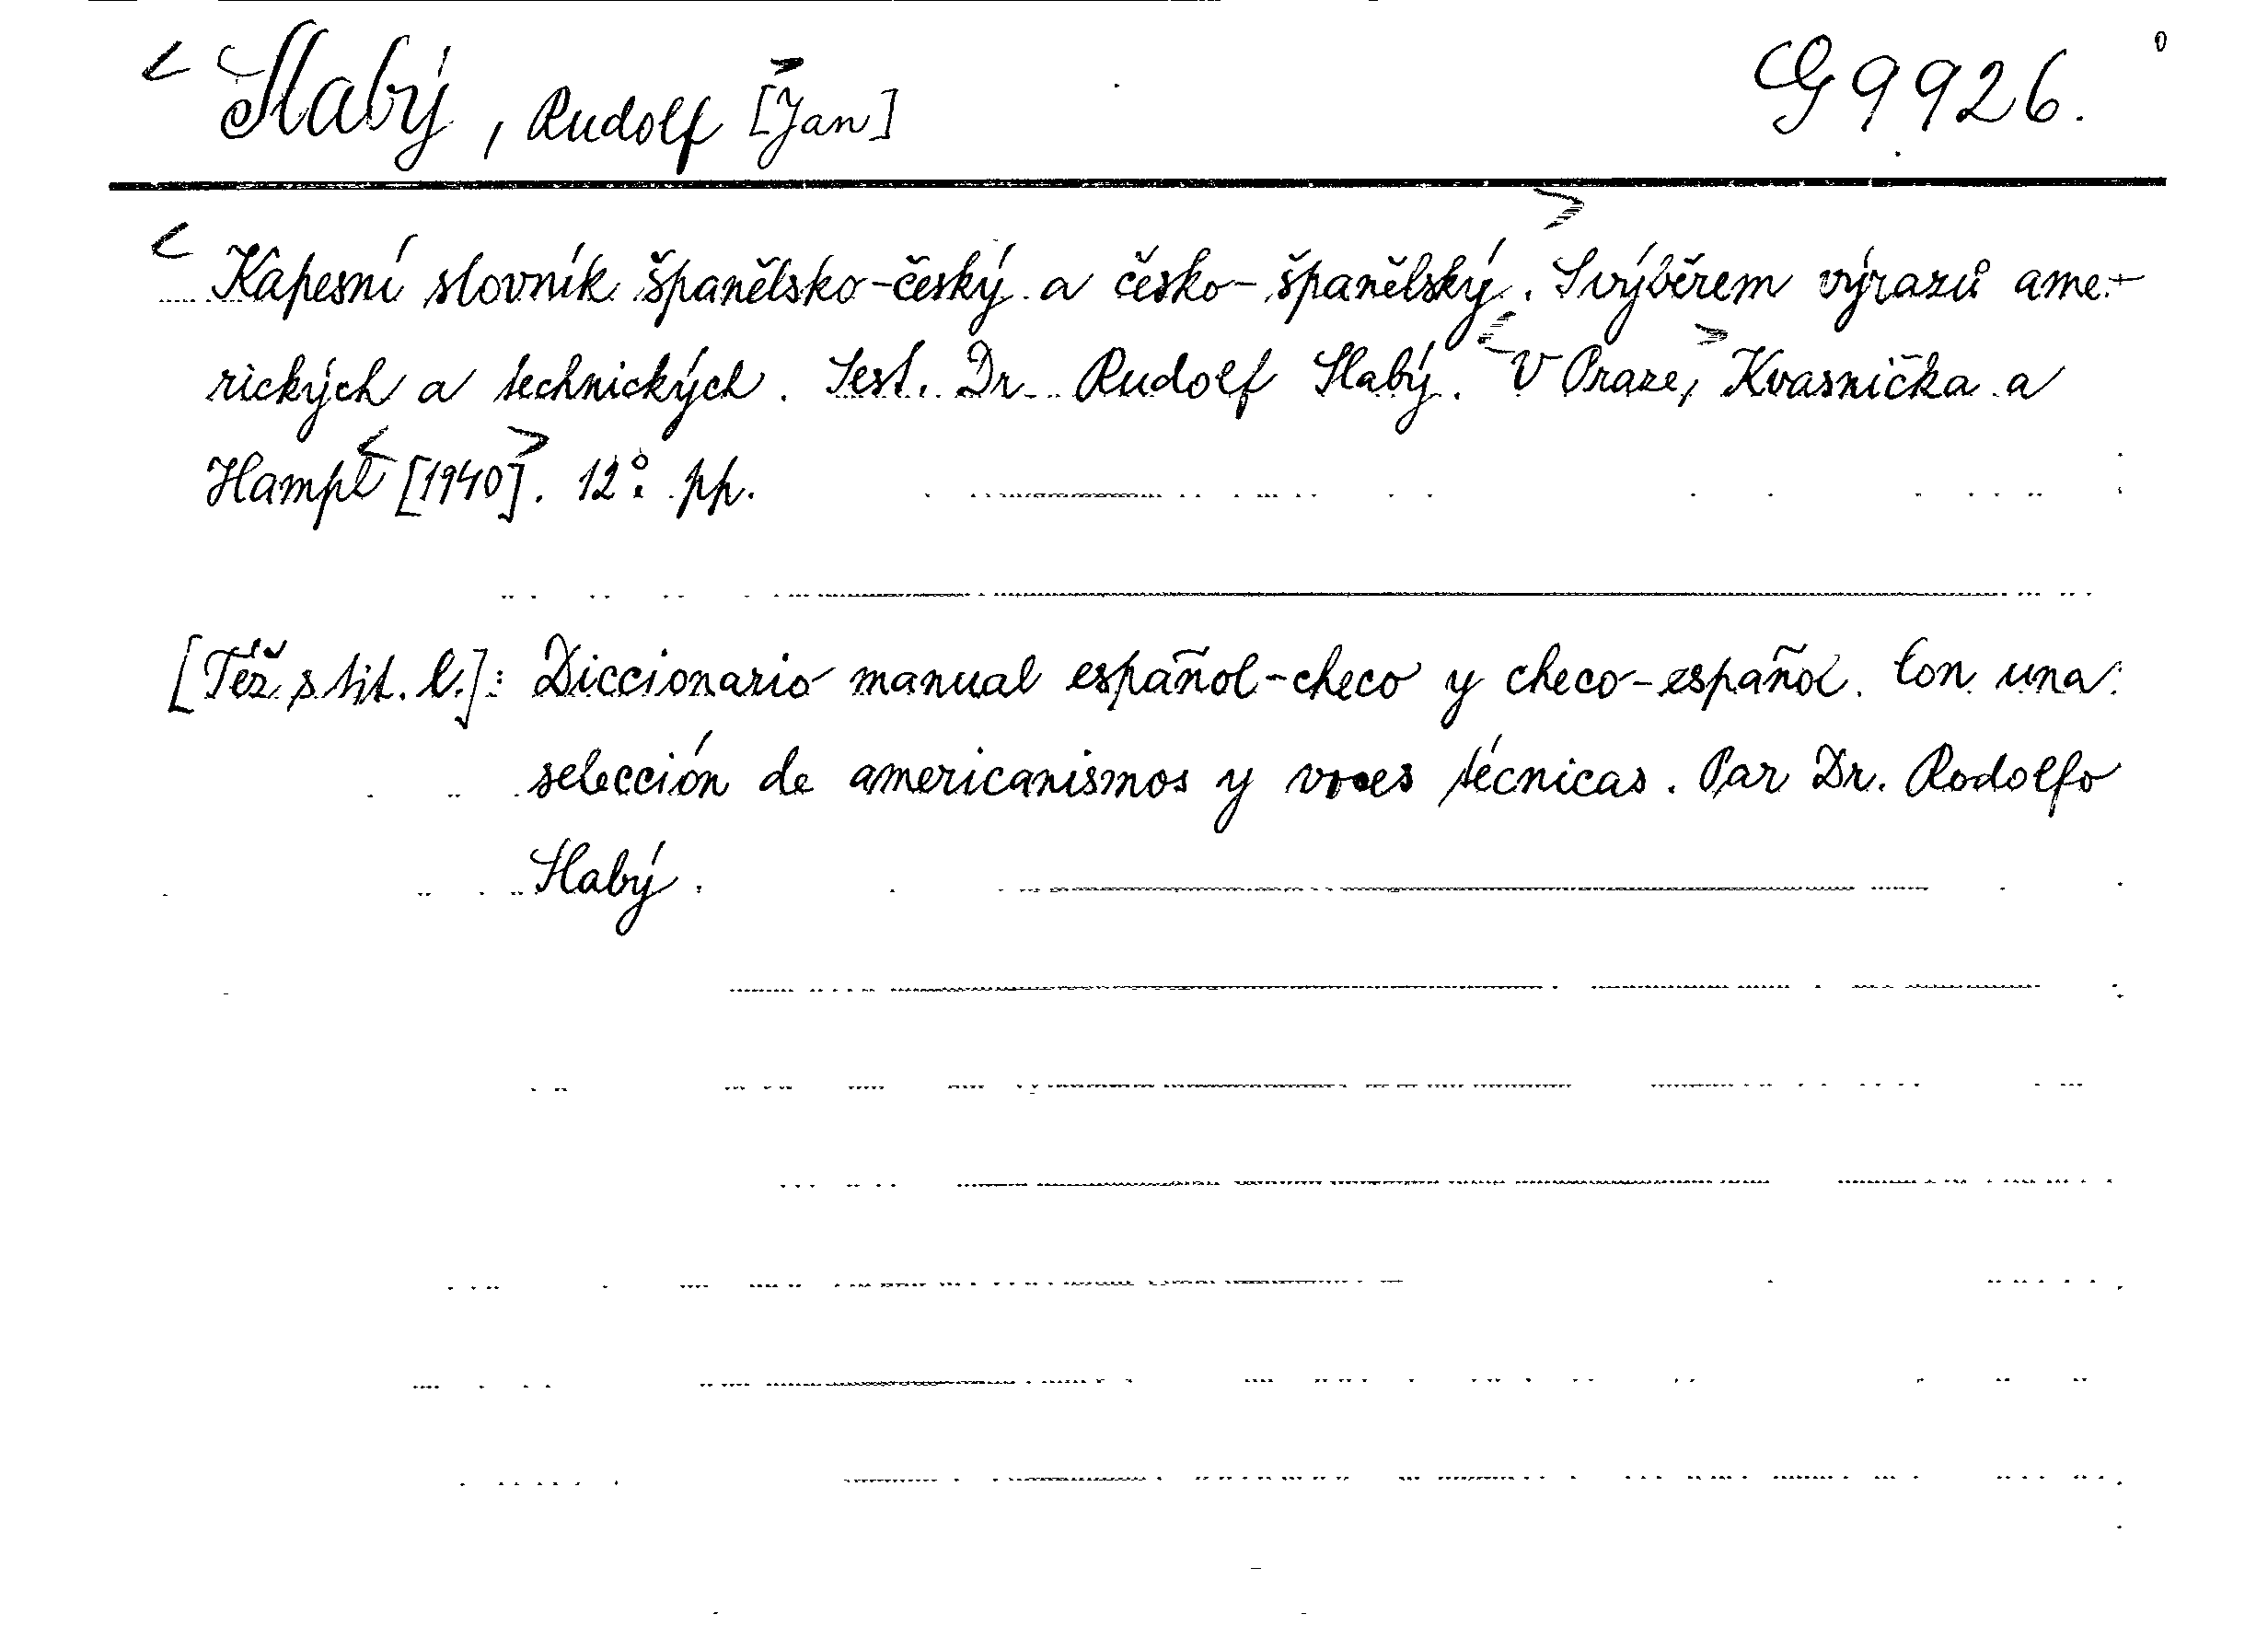 < Slabý, Rudolf [Jan]> G 9926.
< Kapesní slovník španělsko-český a česko-španělský.> S výběrem výrazů ame-
rických a technických. Sest. Dr. Rudolf Slabý. <V Praze,> Kvasnička a
Hampl <[1940]>. 12°. pp.
[Též s tit. l.]: Diccionario manual español-checo y checo-español. Con una
selección de americanismos y voces técnicas. Par Dr. Rodolfo
Slabý.